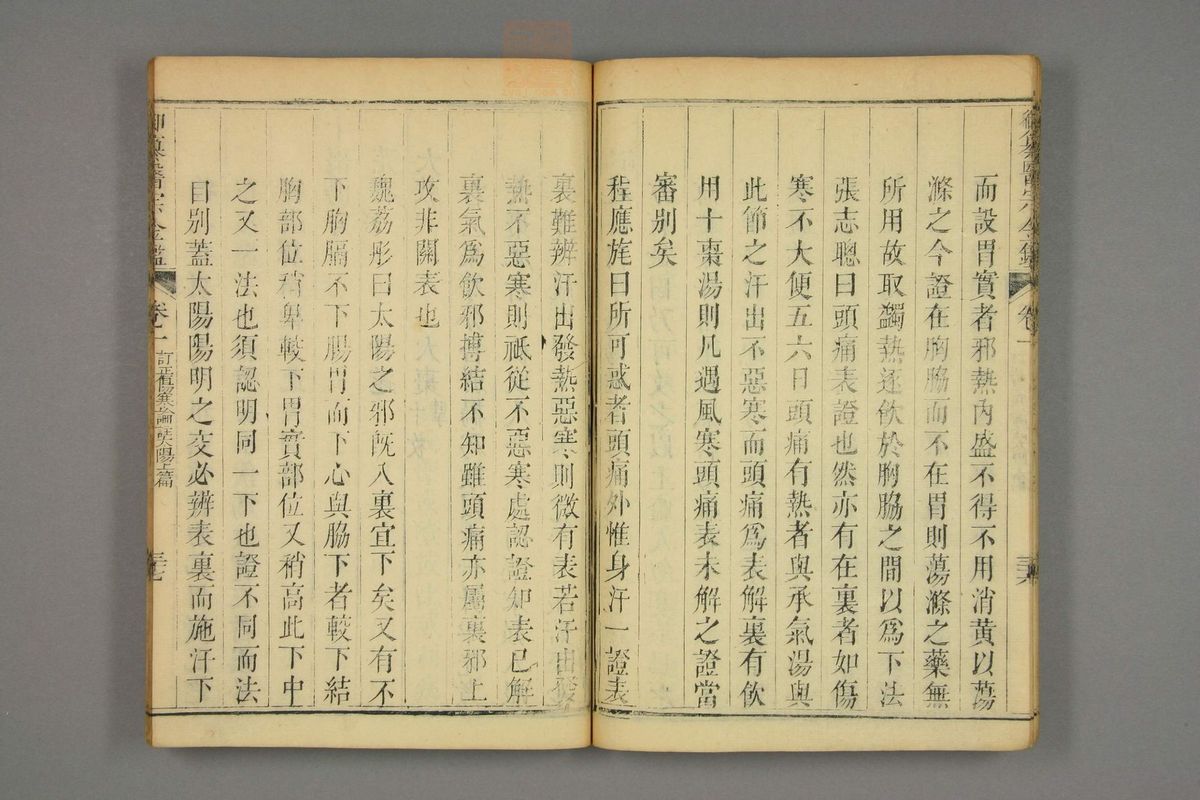 而設胃實者邪熱內盛不得不用消黃以蕩
滌之今證在胸脇而不在胃則蕩滌之藥無
所用故取蠲熱逐飲於胸脇之間以爲下法
張志聰曰頭痛表證也然亦有在裏者如傷
寒不大便五六日頭痛有熱者與承氣湯與
此節之汗出不惡寒而頭痛爲表解裏有飲
用十棗湯則凡遇風寒頭痛表未解之證當
審別矣
程應旄曰所可惑者頭痛外惟身汗一證表
裏難辨汗出發熱惡寒則微有表若汗出發
熱不惡寒則祇從不惡寒處認證知表已解
裏氣爲飲邪搏結不知雖頭痛亦屬裏邪上
攻非關表也
魏荔彤曰太陽之邪旣入裏宜下矣又有不
下胸膈不下腸胃而下心與脇下者較下結
胸部位稍卑較下胃實部位又稍高此下中
之又一法也須認明同一下也證不同而法
自別蓋太陽陽明之交必辨表裏而施汗下
御纂醫宗金鑑
卷一
訂正傷寒論註太陽上篇
三十七